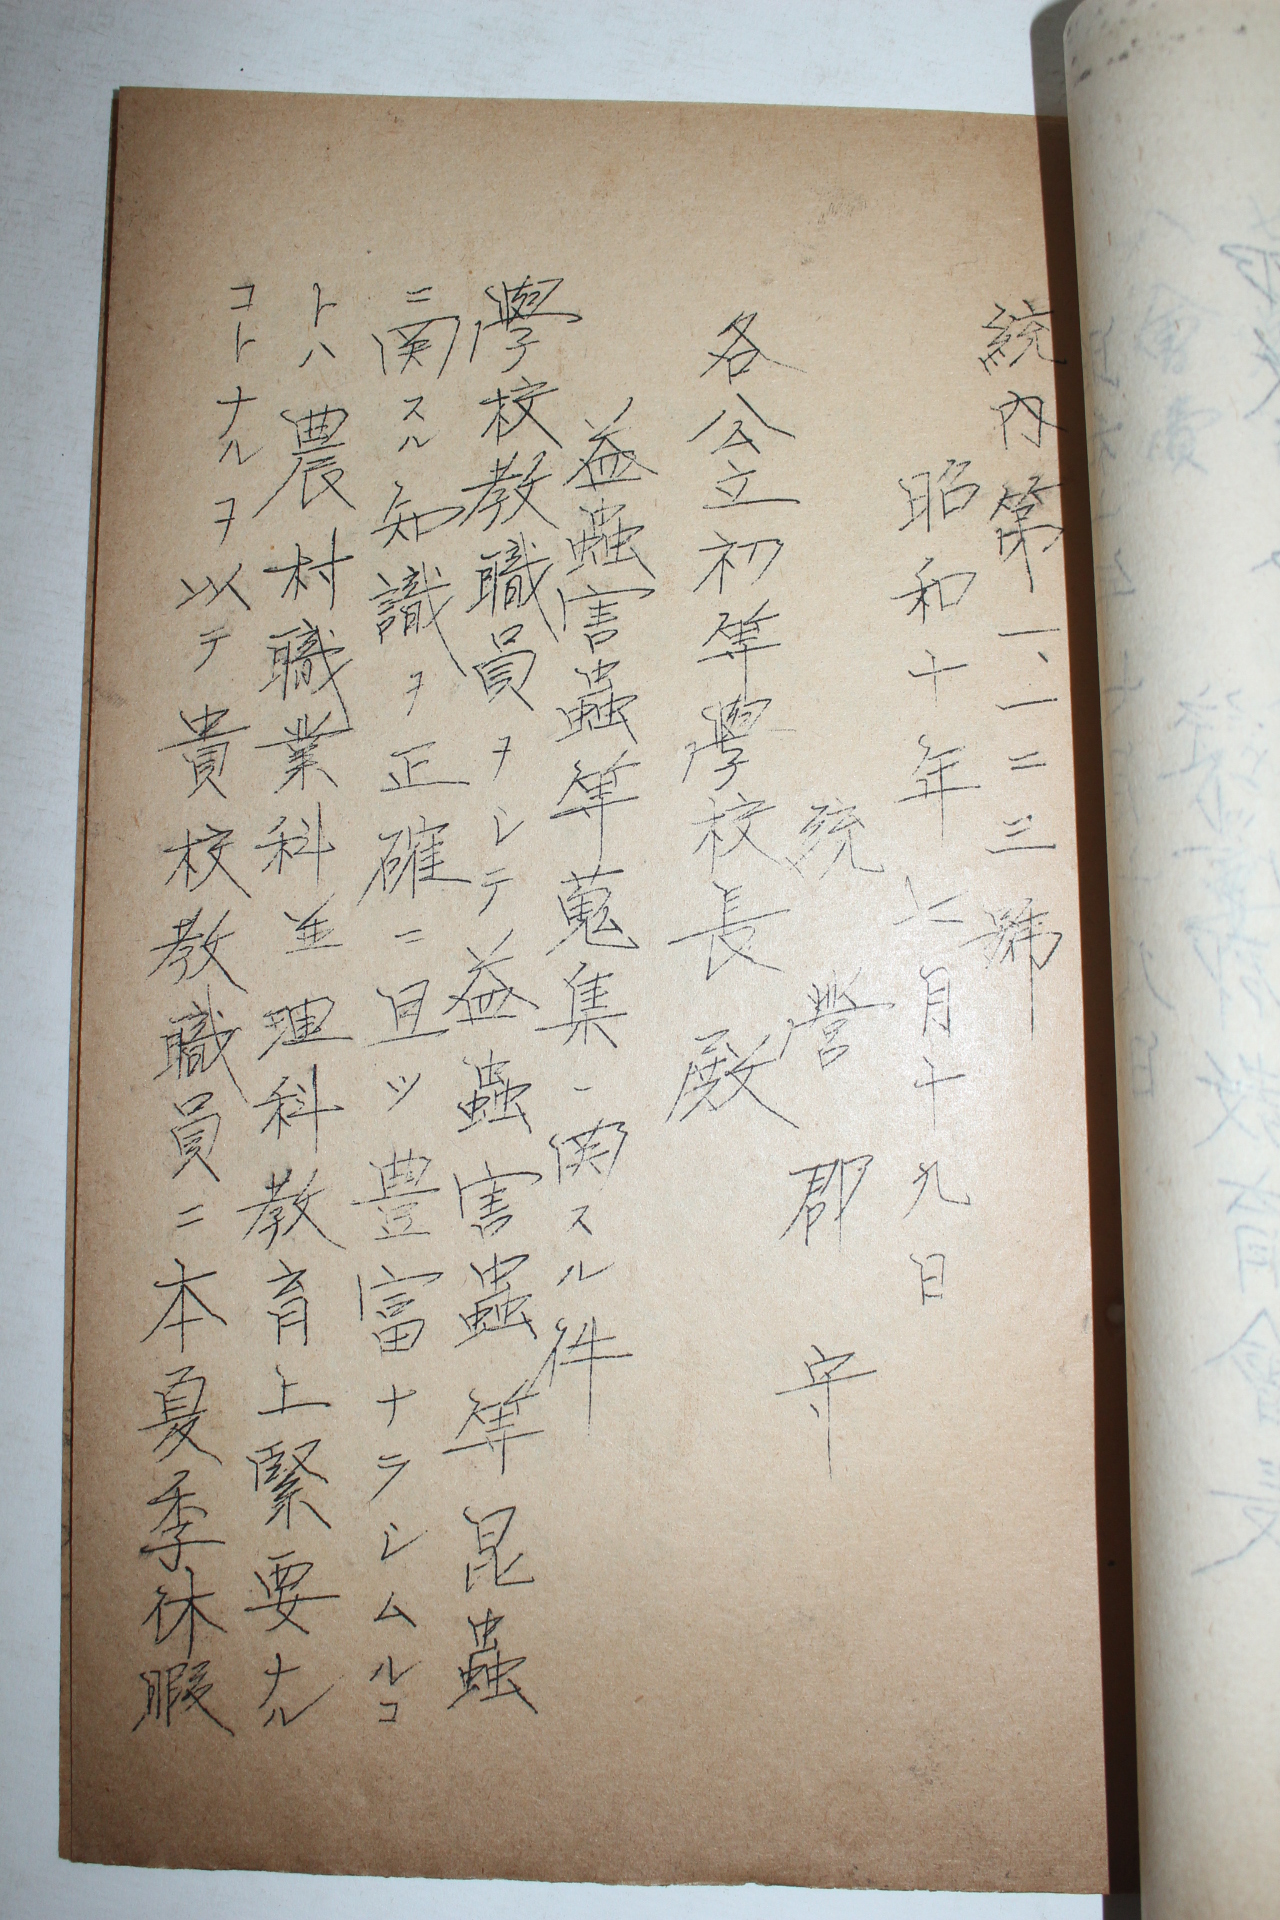 統內第一、一二三號
昭和十年七月十九日
統營郡守
各公立初等學校長殿
益蟲害蟲等蒐集ニ関スル件
學校教職員ヲシテ益蟲害蟲等昆蟲
ニ関スル知識ヲ正確ニ且ツ豊富ナラシムルコ
トハ農村職業科並理科教育上緊要ナル
コトナルヲ以テ貴校教職員ニ本夏季休暇